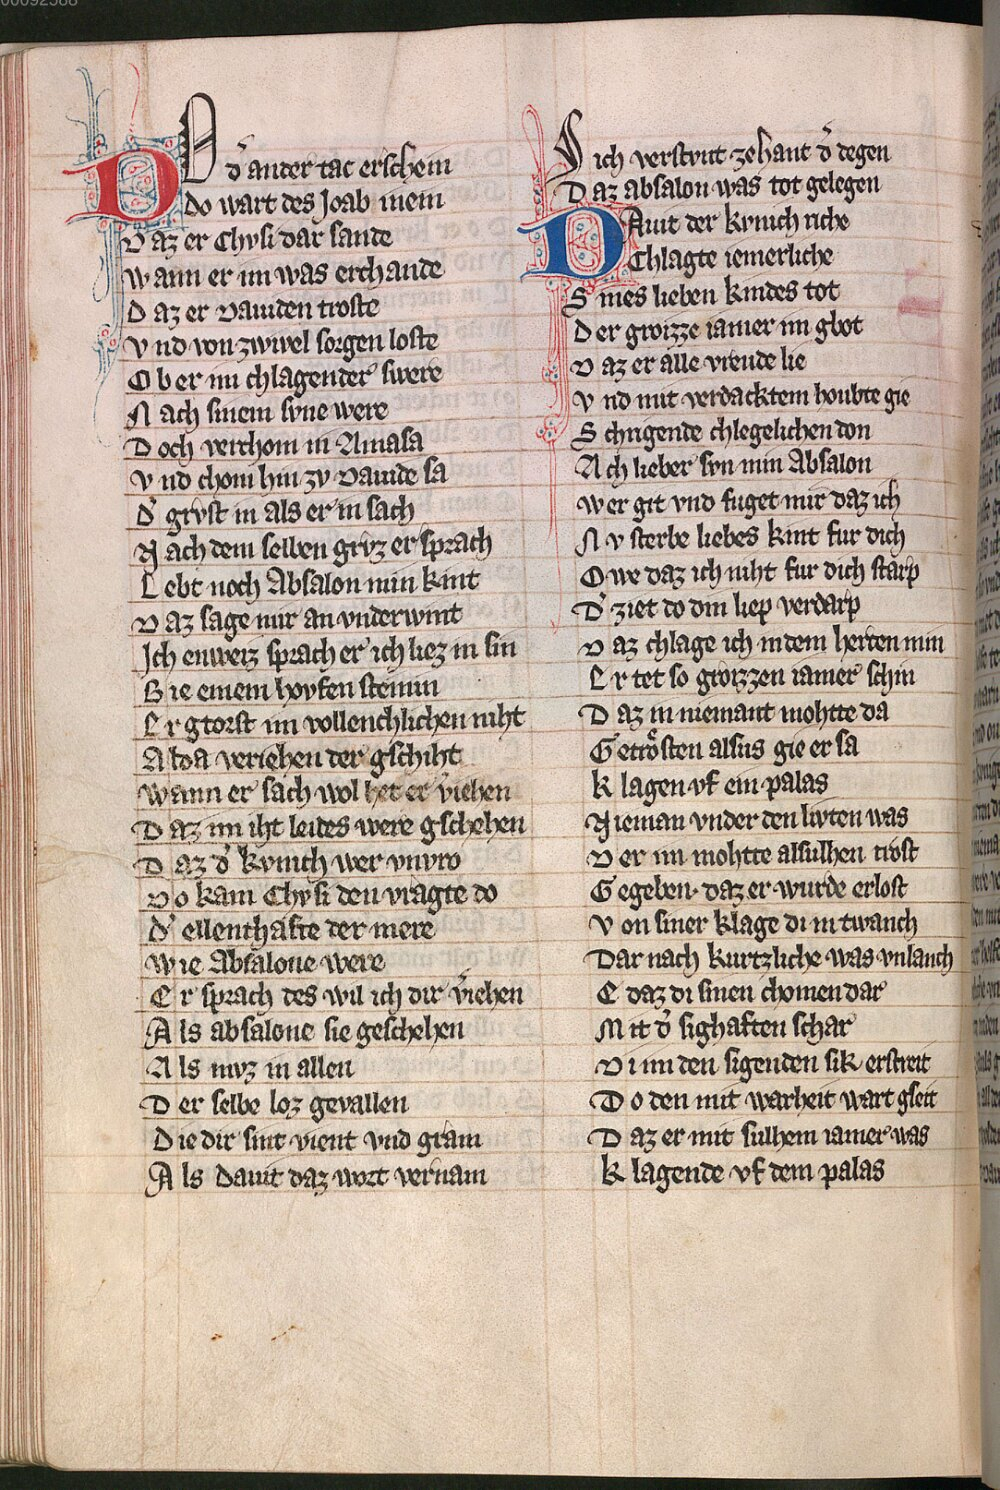 00092588
DO d᷑ ander tac erschein
Do wart des Joab mein
Daz er Chvsi dar sande
Wann er im was erchande
Daz er Dauiden troste
Vnd von zwiuel sorgen loste
Ob er im chlagender swere
Nach sinem svne were
Doch verchom in Amasa
Vnd chom hin zv Dauide sa
D᷑ grvst in als er in sach
Nach dem selben grvz er sprach
Lebt noch Absalon min kint
Daz sage mir an vnderwint
Ich enweiz sprach er ich liez in sin
Bie einem hovfen steinin
Er gtorst im vollenchlichen niht
Alda veriehen der gschiht
Wann er sach wol het er v᷑iehen
Daz im iht leides were gschehen
Daz d᷑ kvnich wer vnvro
Do kam Chvsi den vragte do
D᷑ ellenthafte der mere
Wie Absalone were
Er sprach des wil ich dir v᷑iehen
Als absalone sie geschehen
Als mvz in allen
Der selbe loz gevallen
Die dir sint vient vnd gram
Als Dauit daz wort vernam
Sich verstvnt zehant d᷑ degen
Daz absalon was tot gelegen
DAuit der kvnich riche
Chlagte iemerliche
Sines lieben kindes tot
Der groizze iamer im gbot
Daz er alle vreude lie
Vnd mit verdacktem houbte gie
Schrigende chlegelichen don
Ach lieber svn min Absalon
Wer git vnd fuget mir daz ich
Nv sterbe liebes kint fur dich
Owe daz ich niht fur dich starp
D᷑ ziet do din liep verdarp
Daz chlage ich in dem herten min
Er tet so groizzen iamer schin
Daz in niemant mohtte da
Getrösten alsus gie er sa
Klagen vf ein palas
Nieman vnder den livten was
Der im mohtte alsulhen trost
Gegeben· daz er wurde erlost
Von siner klage di in twanch
Dar nach kurtzliche was vnlanch
E daz di sinen chomen dar
Mit d᷑ sighaften schar
Di im den sigenden sik erstreit
Do den mit warheit wart gseit
Daz er mit sulhem iamer was
Klagende vf dem palas